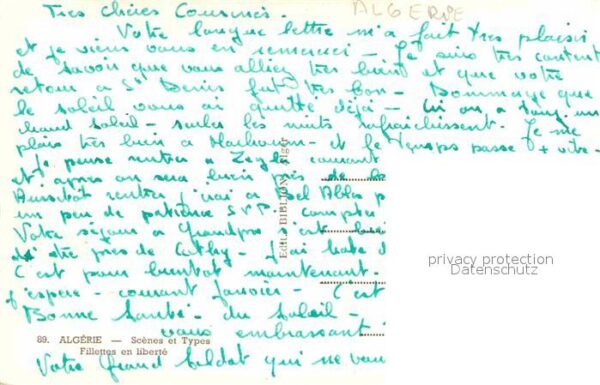 ALGERIE
Très chères Cousines.
Votre longue lettre m'a fait très plaisir
et je viens vous en remercier - Je suis très content
de savoir que vous alliez très bien et que votre
retour à St Denis fut très bon - Dommage que
le soleil vous ai quitté déjà - Ici on a
chaud soleil - seules les nuits rafraichissent. Je me
plais très bien à - et le temps passe + vite -
Je pense rentrer à courant
et après on sera bien près de la
Aussitot rentrer j'irai a Bel Abbes
un peu de patience S.V.P.
Votre séjour a Grandpré
d'être près de Cathy - J'ai hate d
C'est pour bientot maintenant.
J'espere - courant Janvier - C'est
Bonne Santé - du Soleil -
vous embrassant
Votre Grand Soldat qui ne vou
89. ALGÉRIE — Scènes et Types
Fillettes en liberté
privacy protection
Datenschutz